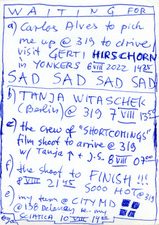 WAITING FOR
a) Carlos Alves to pick
me up @ 319 to drive
visit GERTI HIRSCHORN
in YONKERS 6 VIII 2022 1425
SAD SAD SAD SAD
b) TANJA WITASCHEK
(Berlin) @ 319 7 VIII 13
c) the crew of "SHORTCOMINGS"
film shoot to arrive @ 319
w/ Tanja + J.S. 8 VIII 0700
d) the shoot to FINISH !!!
8 VIII 2145 SOOO HOT @ 319
e) my turn @ CITY MD
@ 138 Delancey re. my
SCIATICA 10 VIII 14